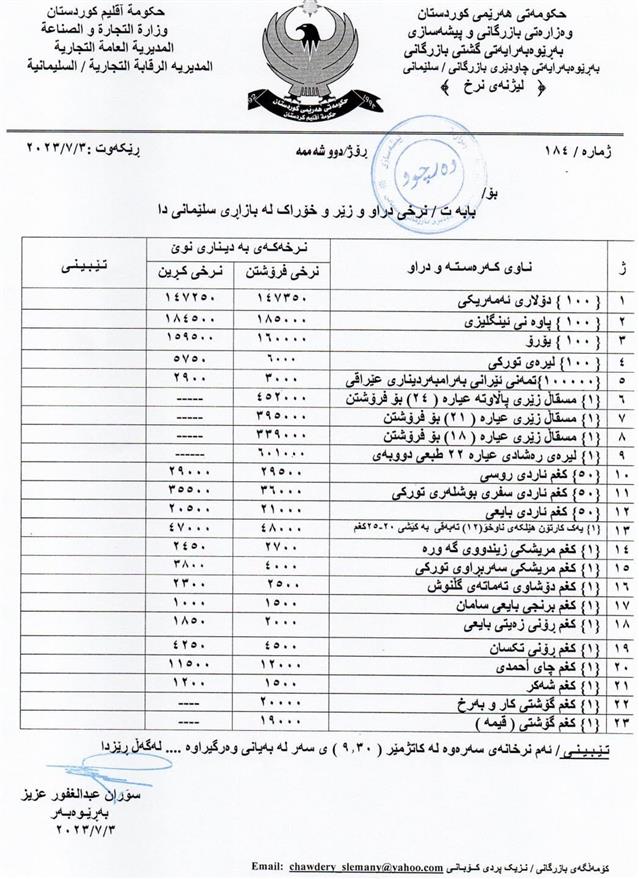 حکومەتی هەرێمی کوردستان
وەزارەتی بازرگانی و پیشەسازی
بەڕێوەبەرایەتی گشتی بازرگانی
بەڕێوەبەرایەتی چاودێری بازرگانی / سلێمانی
﴿ لیژنەی نرخ ﴾
حكومة أقليم كوردستان
وزارة التجارة و الصناعة
المديرية العامة التجارية
المديريه الرقابة التجارية / السليمانية
حکومەتی هەرێمی کوردستان
حكومة اقليم كردستان
ژمارە / ١٨٤
ڕۆژ/دوو شەممە
ڕێکەوت :٢٠٢٣/٧/٣
دەرچوو
بۆ/
بابە ت / نرخی دراو و زێر و خۆراک لە بازاڕی سلێمانی دا
ژ ناوی کەرەستە و دراو نرخەکەی بە دیناری نوێ تێبینی
نرخی فرۆشتن نرخی کڕین
١ {١٠٠} دۆلاری ئەمەریکی ١٤٧٣٥٠ ١٤٧٢٥٠
٢ {١٠٠} پاوە نی ئینگلیزی ١٨٥٠٠٠ ١٨٤٥٠٠
٣ {١٠٠} یۆرۆ ١٦٠٠٠٠ ١٥٩٥٠٠
٤ {١٠٠} لیرەی تورکی ٦٠٠٠ ٥٧٥٠
٥ {١٠٠٠٠٠}تمەنی ئێرانی بەرامبەردیناری عێراقی ٣٠٠٠ ٢٩٠٠
٦ {١} مسقاڵ زێری پاڵاوتە عیارە ( ٢٤ ) بۆ فرۆشتن ٤٥٢٠٠٠ -----
٧ {١} مسقاڵ زێری عیارە ( ٢١ ) بۆ فرۆشتن ٣٩٥٠٠٠ -----
٨ {١} مسقاڵ زێری عیارە ( ١٨ ) بۆ فرۆشتن ٣٣٩٠٠٠ -----
٩ {١} لیرەی ڕەشادی عیارە ٢٢ طبعی دووبەی ٦٠١٠٠٠ ------
١٠ {٥٠} کغم ئاردی روسی ٢٩٥٠٠ ٢٩٠٠٠
١١ {٥٠} کغم ئاردی سفری بوشلەری تورکی ٣٦٠٠٠ ٣٥٥٠٠
١٢ {٥٠} کغم ئاردی بایعی ٢١٠٠٠ ٢٠٥٠٠
١٣ {١} یەک کارتۆن هێلکەی ناوخۆ(١٢) تەبەقی بە کێشی ٢٠-٢٥کغم ٤٨٠٠٠ ٤٧٠٠٠
١٤ {١} کغم مریشکی زیندووی گە ورە ٢٧٠٠ ٢٤٥٠
١٥ {١} کغم مریشکی سەربڕاوی تورکی ٤٠٠٠ ٣٨٠٠
١٦ {١} کغم دۆشاوی تەماتەی گڵنوش ٢٥٠٠ ٢٣٠٠
١٧ {١} کغم برنجی بایعی سامان ١٥٠٠ ١٠٠٠
١٨ {١} کغم ڕۆنی زەیتی بایعی ٢٠٠٠ ١٨٥٠
١٩ {١} کغم ڕۆنی تکسان ٤٥٠٠ ٤٢٥٠
٢٠ {١} کغم چای أحمدی ١٢٠٠٠ ١١٥٠٠
٢١ {١} کغم شەکر ١٥٠٠ ١٢٠٠
٢٢ {١} کغم گۆشتی کار و بەرخ ٢٠٠٠٠ ----
٢٣ {١} کغم گۆشتی ( قیمە ) ١٩٠٠٠ ----
تێبینی / ئەم نرخانەی سەرەوە لە کاتژمێر ( ٩,٣٠ ) ی سەر لە بەیانی وەرگیراوە .... لەگەڵ ڕێزدا
سۆران عبدالغفور عزیز
بەڕێوەبەر
٢٠٢٣/٧/٣
کۆمەڵگەی بازرگانی / نزیک پردی کۆبانی Email: chawdery_slemany@yahoo.com